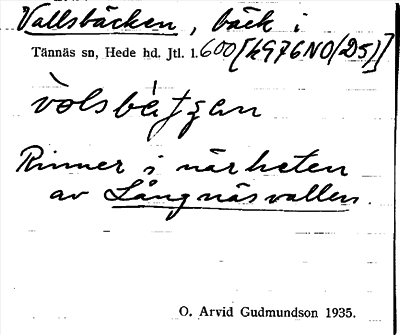 Vallsbäcken, bäck i
Tännäs sn, Hede hd. Jtl. l. 600 [h976NO(25)]
Rinner i närheten
av Långnäsvallen.
O. Arvid Gudmundson 1935.